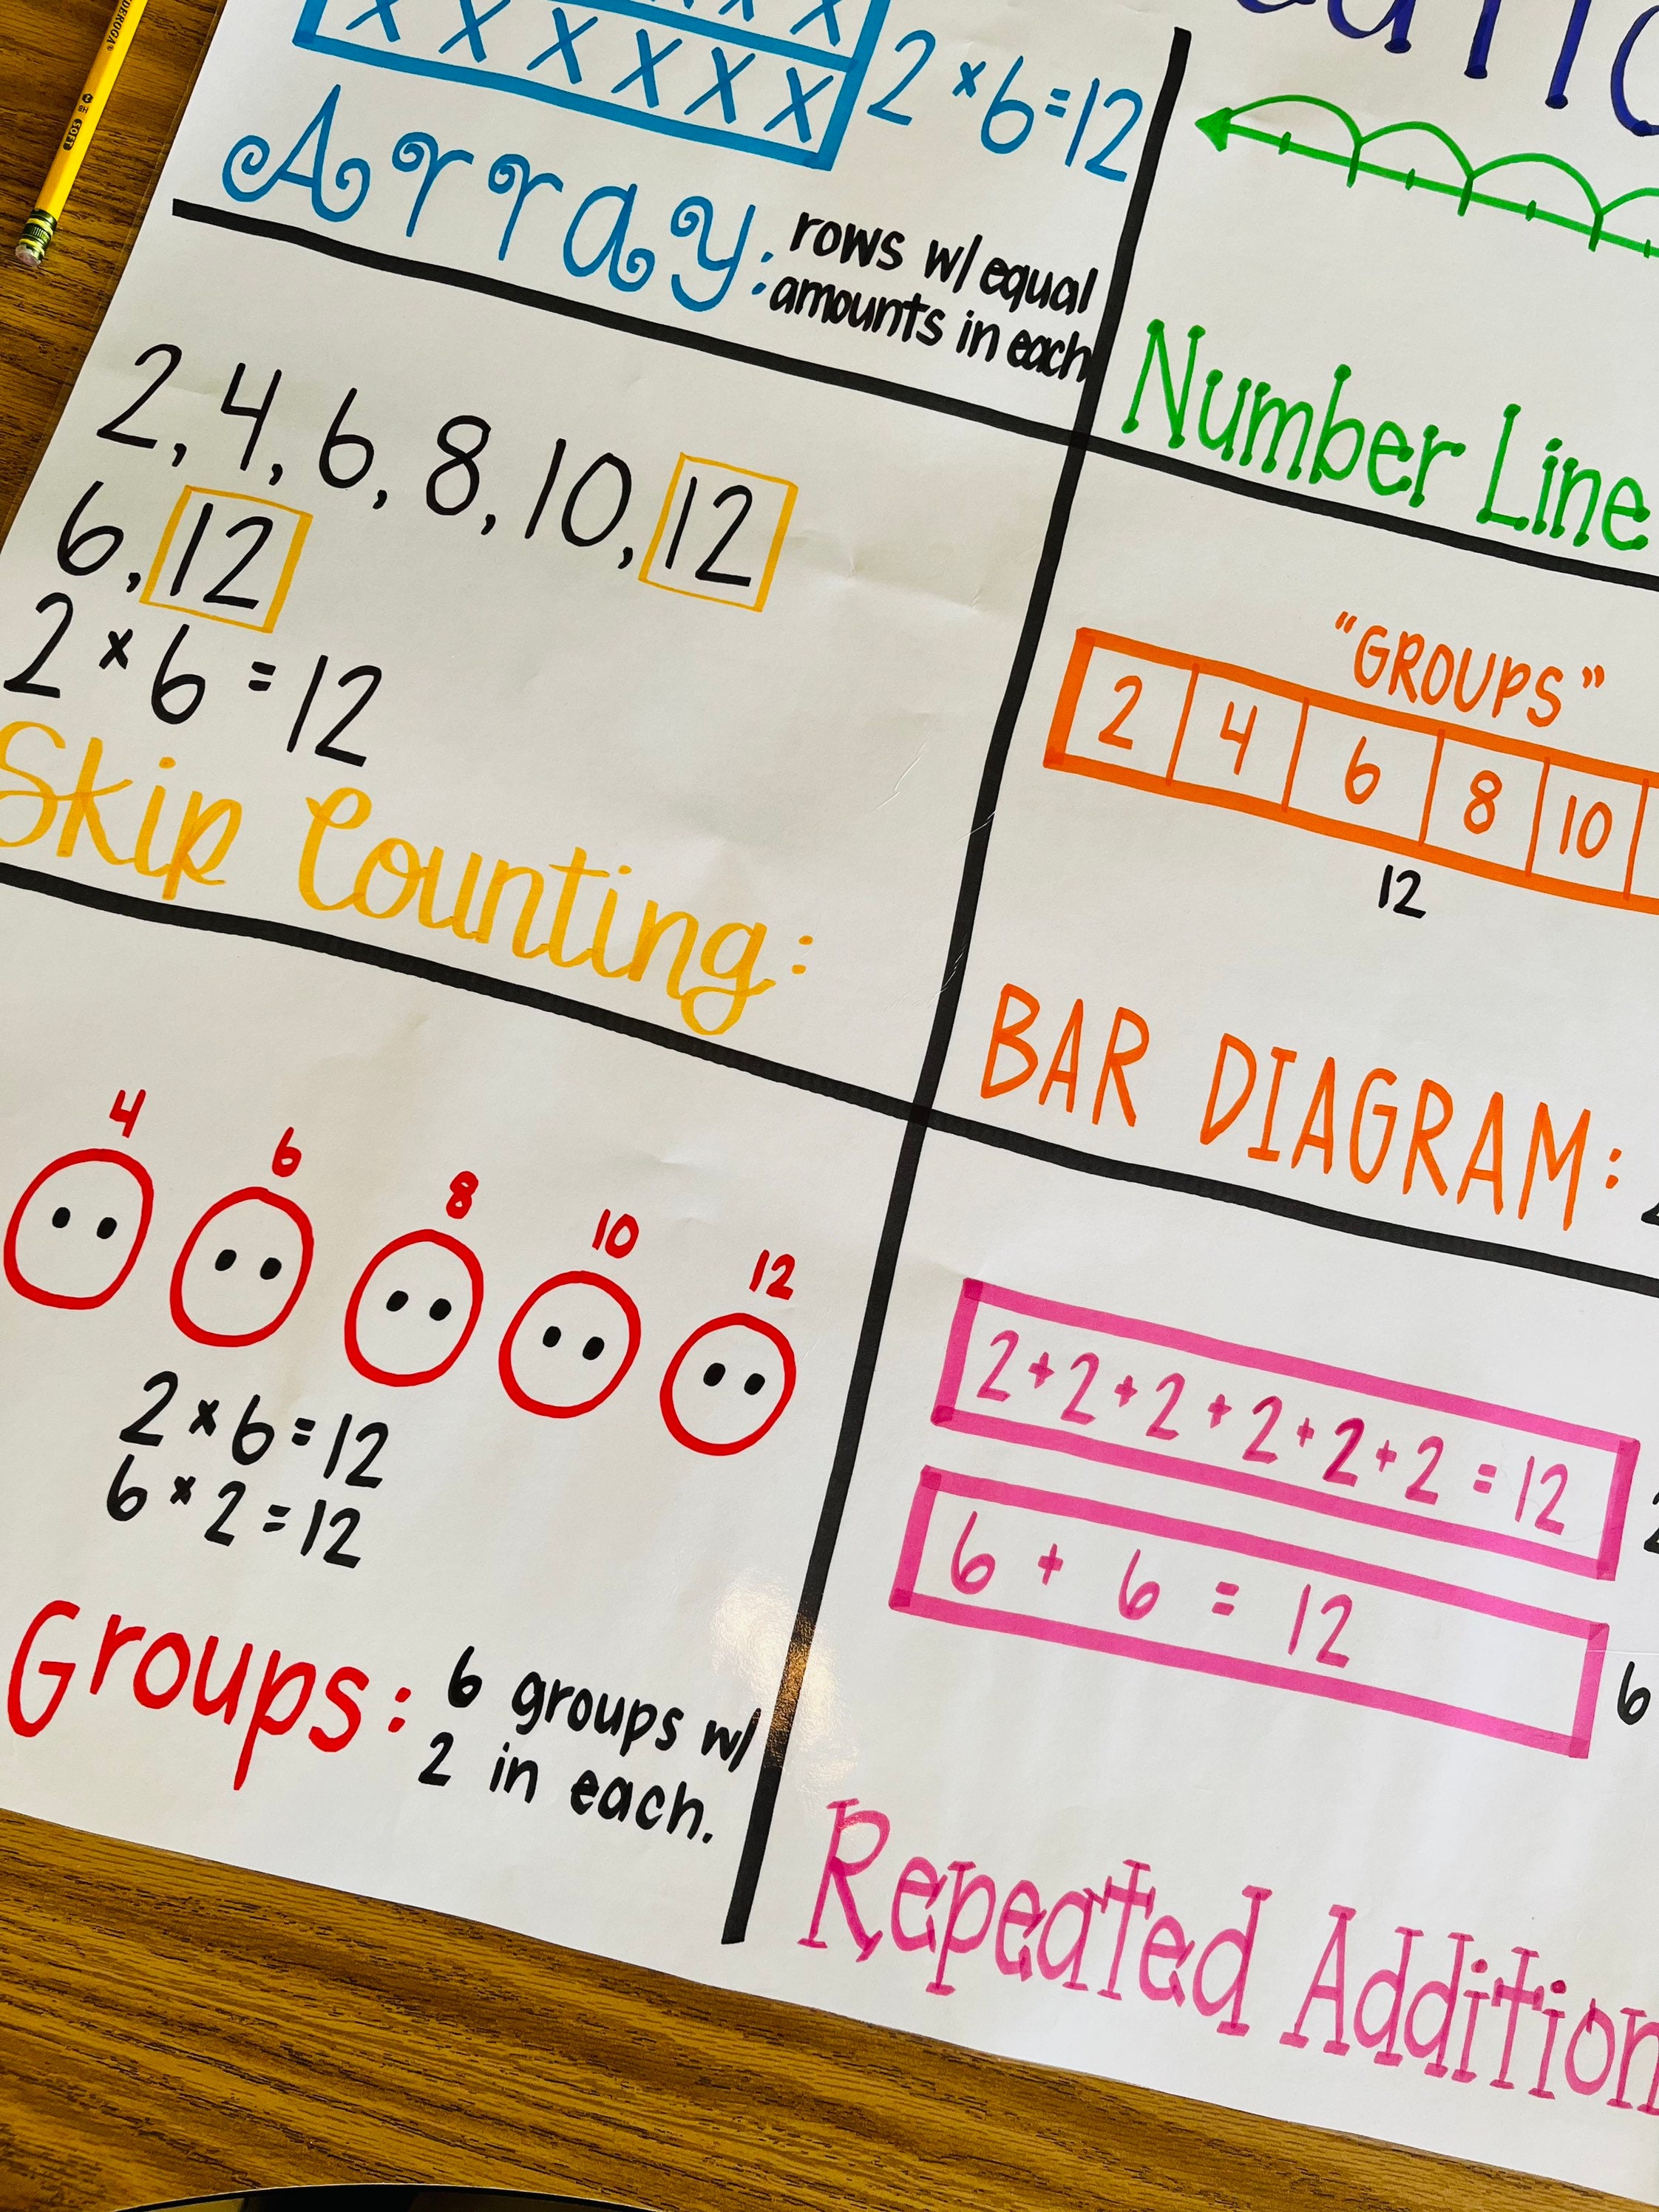 2 × 6 = 12
Array: rows w/ equal
amounts in each
Number Line
2, 4, 6, 8, 10, 12
6, 12
2 × 6 = 12
Skip Counting:
"GROUPS"
2 4 6 8 10
12
BAR DIAGRAM:
4 6 8 10 12
2 × 6 = 12
6 × 2 = 12
Groups: 6 groups w/
2 in each.
2 + 2 + 2 + 2 + 2 + 2 = 12
6 + 6 = 12
6
Repeated Addition